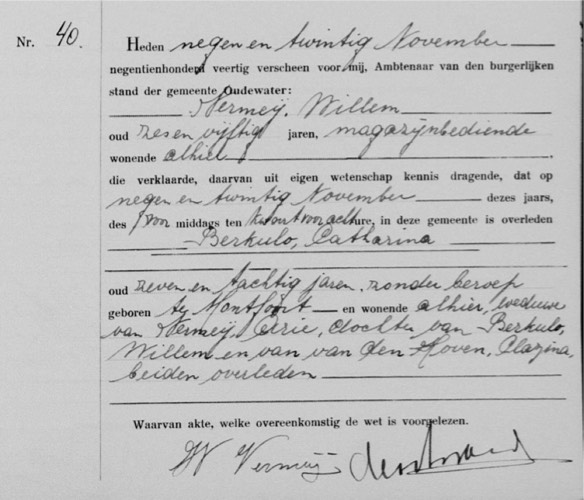 Nr. 40.
Heden negen en twintig November
negentienhonderd veertig verscheen voor mij, Ambtenaar van den burgerlijken
stand der gemeente Oudewater:
Vermeij, Willem
oud zes en vijftig jaren, magazijnbediende
wonende alhier
die verklaarde, daarvan uit eigen wetenschap kennis dragende, dat op
negen en twintig November dezes jaars,
des voor middags ten kwart voor acht ure, in deze gemeente is overleden
Berkulo, Catharina
oud zeven en tachtig jaren, zonder beroep
geboren te Montfoort en wonende alhier, weduwe
van Vermeij, Arie, dochter van Berkulo,
Willem en van van den Hoven, Clazina,
beiden overleden
Waarvan akte, welke overeenkomstig de wet is voorgelezen.
W Vermeij